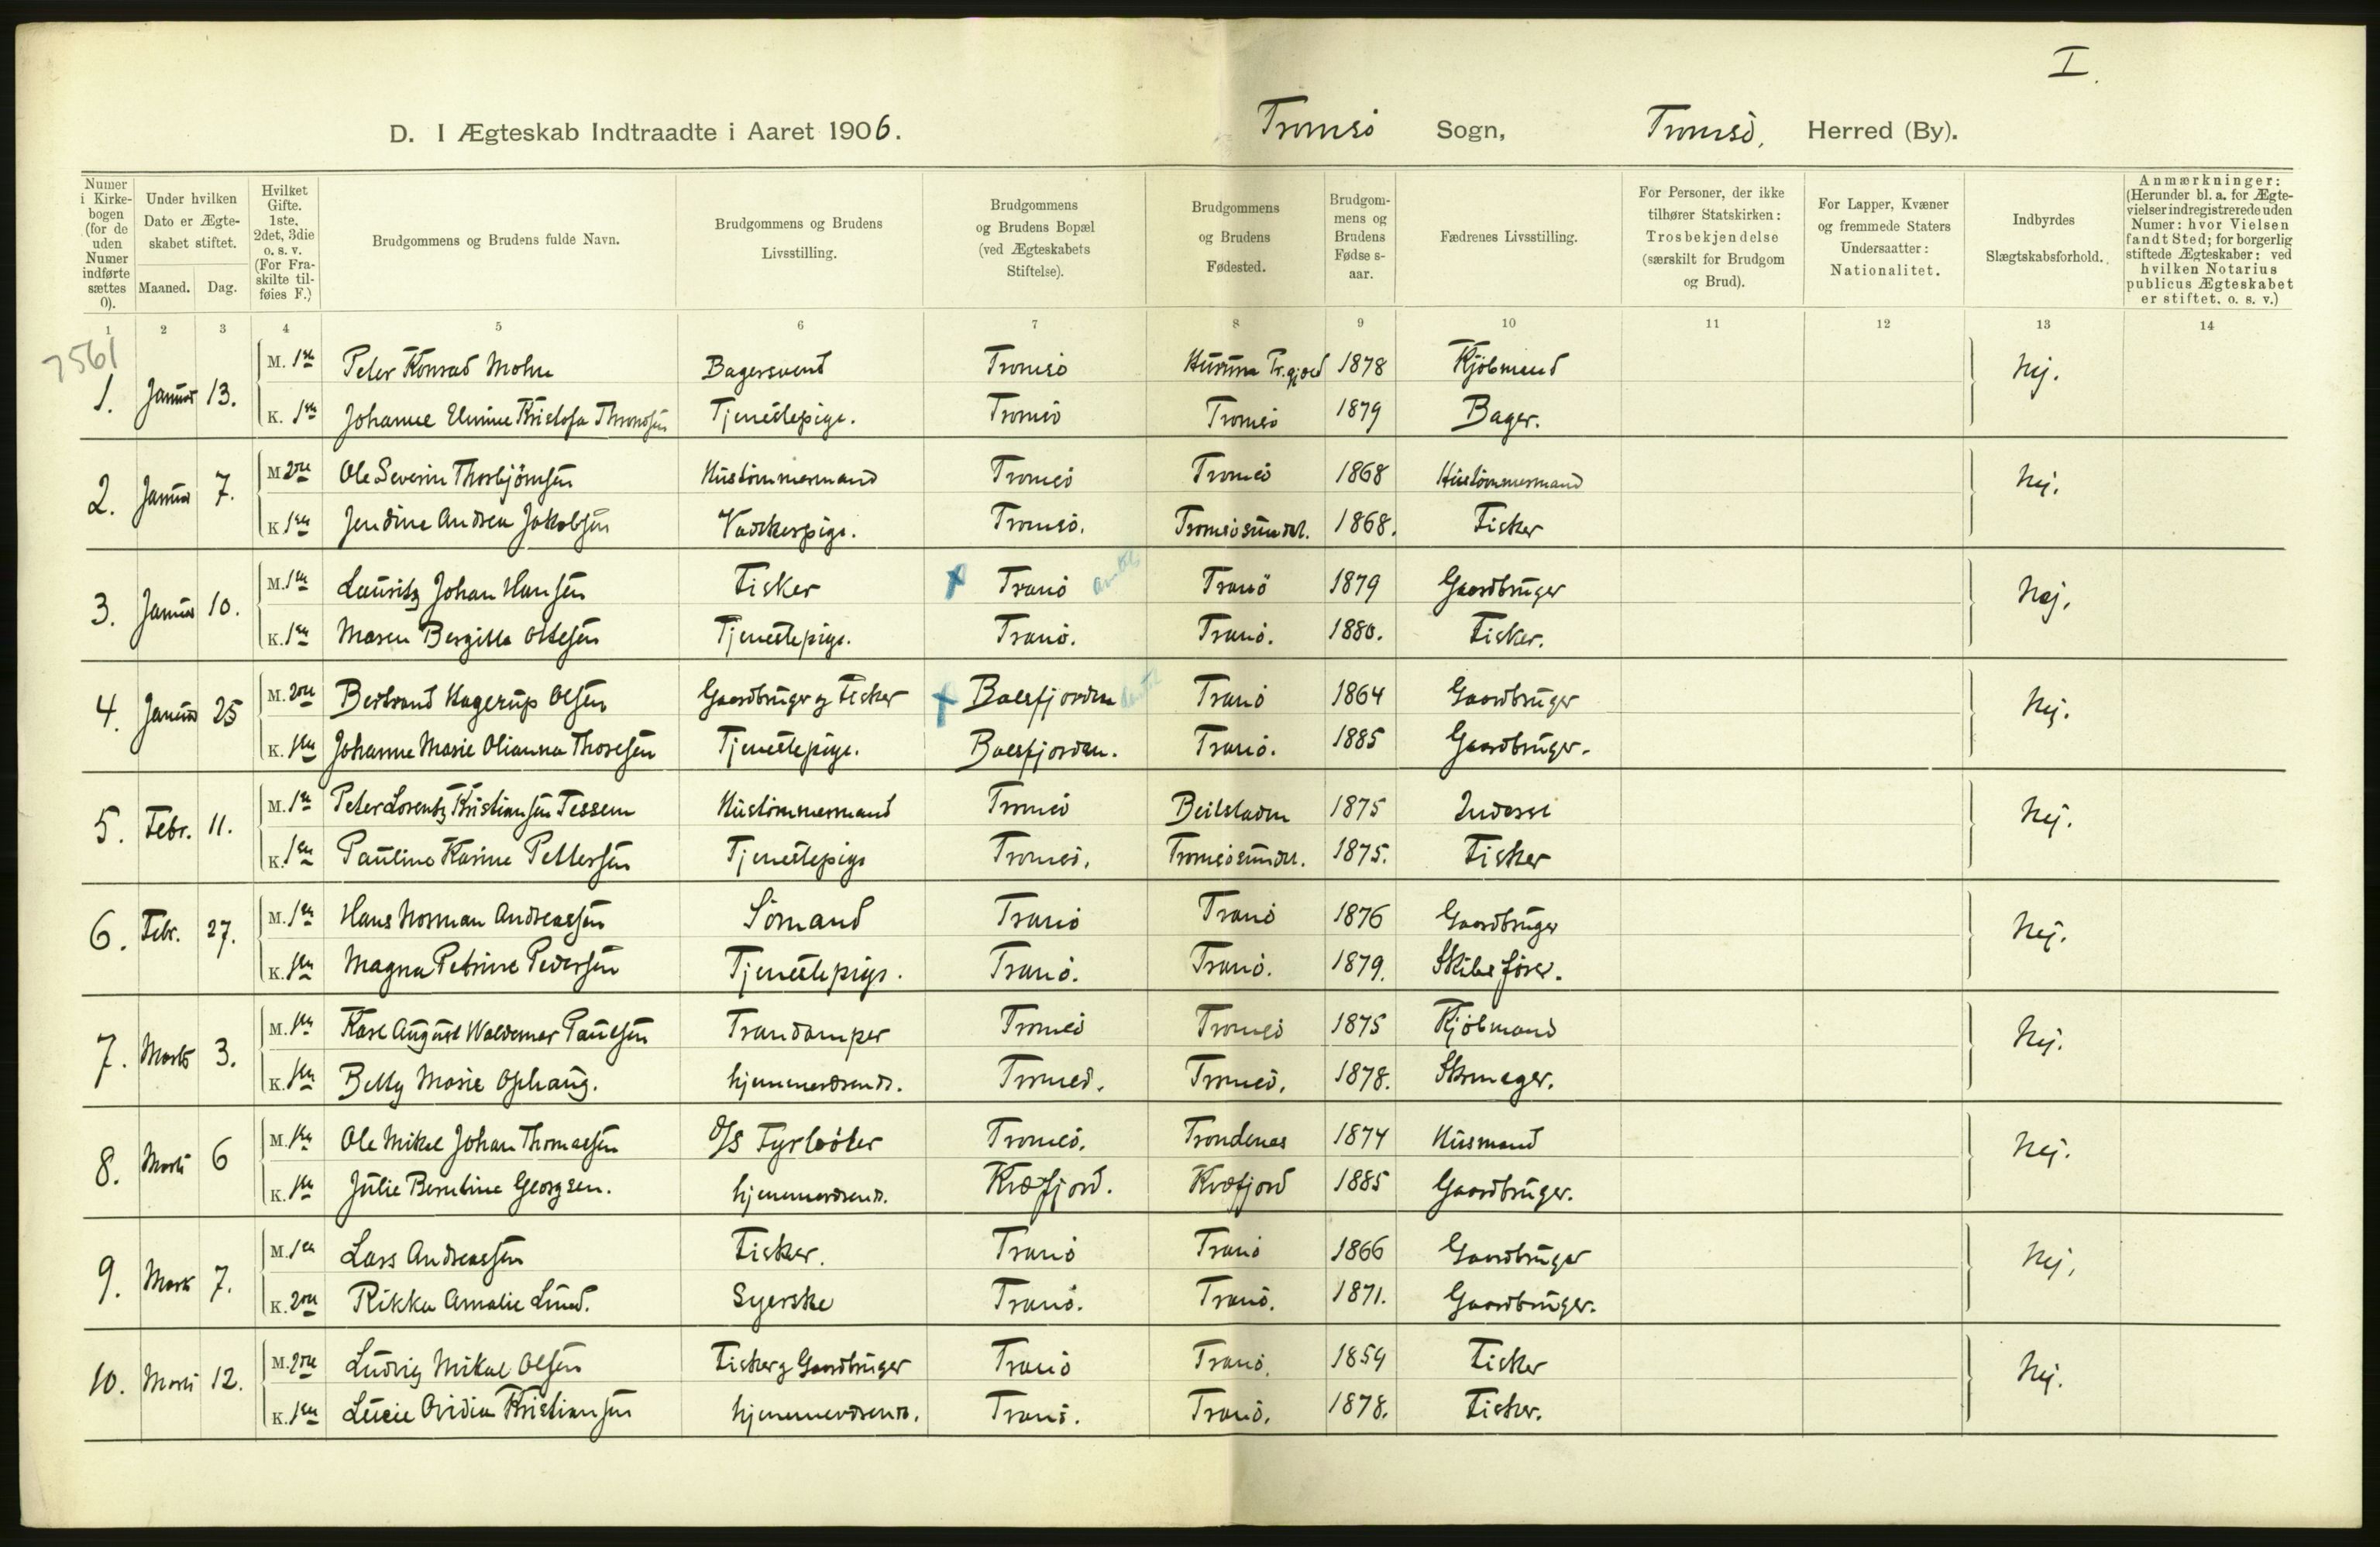 I.
D. I Ægteskab Indtraadte i Aaret 1906. Tromsö Sogn, Tromsö, Herred (By).
Numer i Kirkebogen (for de uden Numer indførte sættes 0).
Under hvilken Dato er Ægteskabet stiftet.
Maaned. Dag.
Hvilket Gifte. 1ste. 2det, 3die o. s. v. (For Fraskilte tilføies F.)
Brudgommens og Brudens fulde Navn.
Brudgommens og Brudens Livsstilling.
Brudgommens og Brudens Bopæl (ved Ægteskabets Stiftelse).
Brudgommens og Brudens Fødested.
Brudgommens og Brudens Fødses-aar.
Fædrenes Livsstilling.
For Personer, der ikke tilhører Statskirken: Trosbekjendelse (særskilt for Brudgom og Brud).
For Lapper, Kvæner og fremmede Staters Undersaatter: Nationalitet.
Indbyrdes Slægtskabsforhold.
Anmærkninger: (Herunder bl. a. for Ægtevielser indregistrerede uden Numer: hvor Vielsen fandt Sted; for borgerlig stiftede Ægteskaber: ved hvilken Notarius publicus Ægteskabet er stiftet. o. s. v.)
1 2 3 4 5 6 7 8 9 10 11 12 13 14
7561
1. Januar 13. M. 1ste Peter Konrad Mohn Bagersvend Tromsö 1878 Kjöbmand Nej.
K. 1ste Johanne Elvine Kristofa Thronsen Tjenestepige. Tromsö Tromsö 1879 Bager.
2. Januar 7. M 2den Ole Severin Thorbjörnsen Hustömmermand Tromsö Tromsö 1868 Hustömmermand Nej.
K 1ste Jendine Andrea Jakobsen Vaskerpige. Tromsö. Tromsösundet. 1868. Fisker
3. Januar 10. M. 1ste Lauritz Johan Hansen Fisker Tranö Tranö 1879 Gaardbruger Nej.
K. 1ste Maren Bergitta Ottesen Tjenestepige. Tranö. Tranö. 1880. Fisker.
4. Januar 25 M. 2den Bertrand Hagerup Olsen Gaardbruger og Fisker Balsfjorden Tranö 1864 Gaardbruger Nej.
K. 1ste Johanne Marie Olianna Thoresen Tjenestepige. Balsfjorden. Tranö. 1885 Gaardbruger.
5. Febr. 11. M. 1ste Peter Lorentz Kristiansen Tessem Hustömmermand Tromsö Beitstaden 1875 Inderst Nej.
K. 1ste Pauline Karine Pettersen Tjenestepige Tromsö. Tromsösundet. 1875. Fisker
6. Febr. 27. M. 1ste Hans Norman Andreassen Sömand Tranö Tranö 1876 Gaardbruger Nej.
K. 1ste Magna Petrine Pedersen Tjenestepige. Tranö. Tranö. 1879. Skibsförer.
7. Marts 3. M. 1ste Karl August Waldemar Paulsen Trandamper Tromsö Tromsö 1875 Kjöbmand Nej.
K. 1ste Betty Marie Ophaug. hjemmeværende. Tromsö. Tromsö. 1878. Skomager.
8. Marts 6 M. 1ste Ole Mikal Johan Thomassen D/S Fyrböter Tromsö. Trondenes 1874 Husmand Nej.
K. 1ste Julie Berntine Georgsen. hjemmeværende. Kvæfjord. Kvæfjord 1885 Gaardbruger.
9. Marts 7. M. 1ste Lars Andreassen Fisker. Tranö Tranö 1866 Gaardbruger Nej.
K. 2den Rikka Amalie Lund. Syerske Tranö. Tranö. 1871. Gaardbruger.
10. Marts 12. M. 2den Ludvig Mikal Olsen Fisker og Gaardbruger Tranö Tranö. 1859 Fisker Nej.
K. 1ste Lucie Ovidia Kristiansen hjemmeværende. Tranö. Tranö. 1878. Fisker.